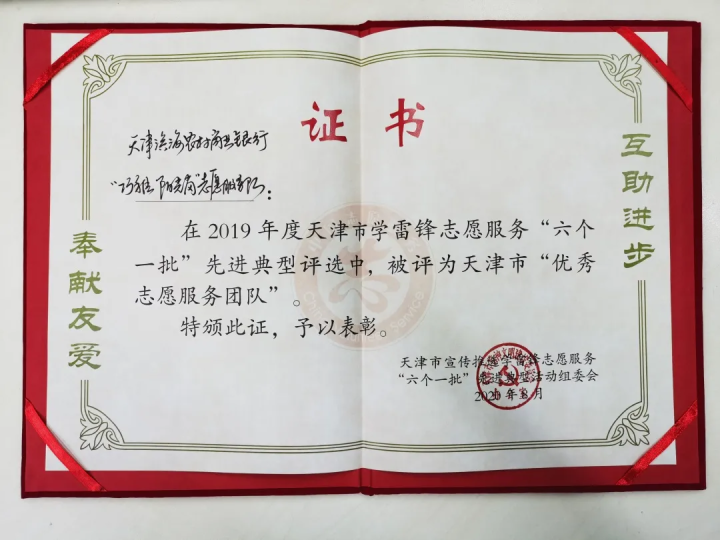 证书
天津滨海农村商业银行
志愿服务队：
在2019年度天津市学雷锋志愿服务“六个
一批”先进典型评选中，被评为天津市“优秀
志愿服务团队”。
特颁此证，予以表彰。
天津市宣传推选学雷锋志愿服务
“六个一批”先进典型活动组委会
奉献友爱
互助进步